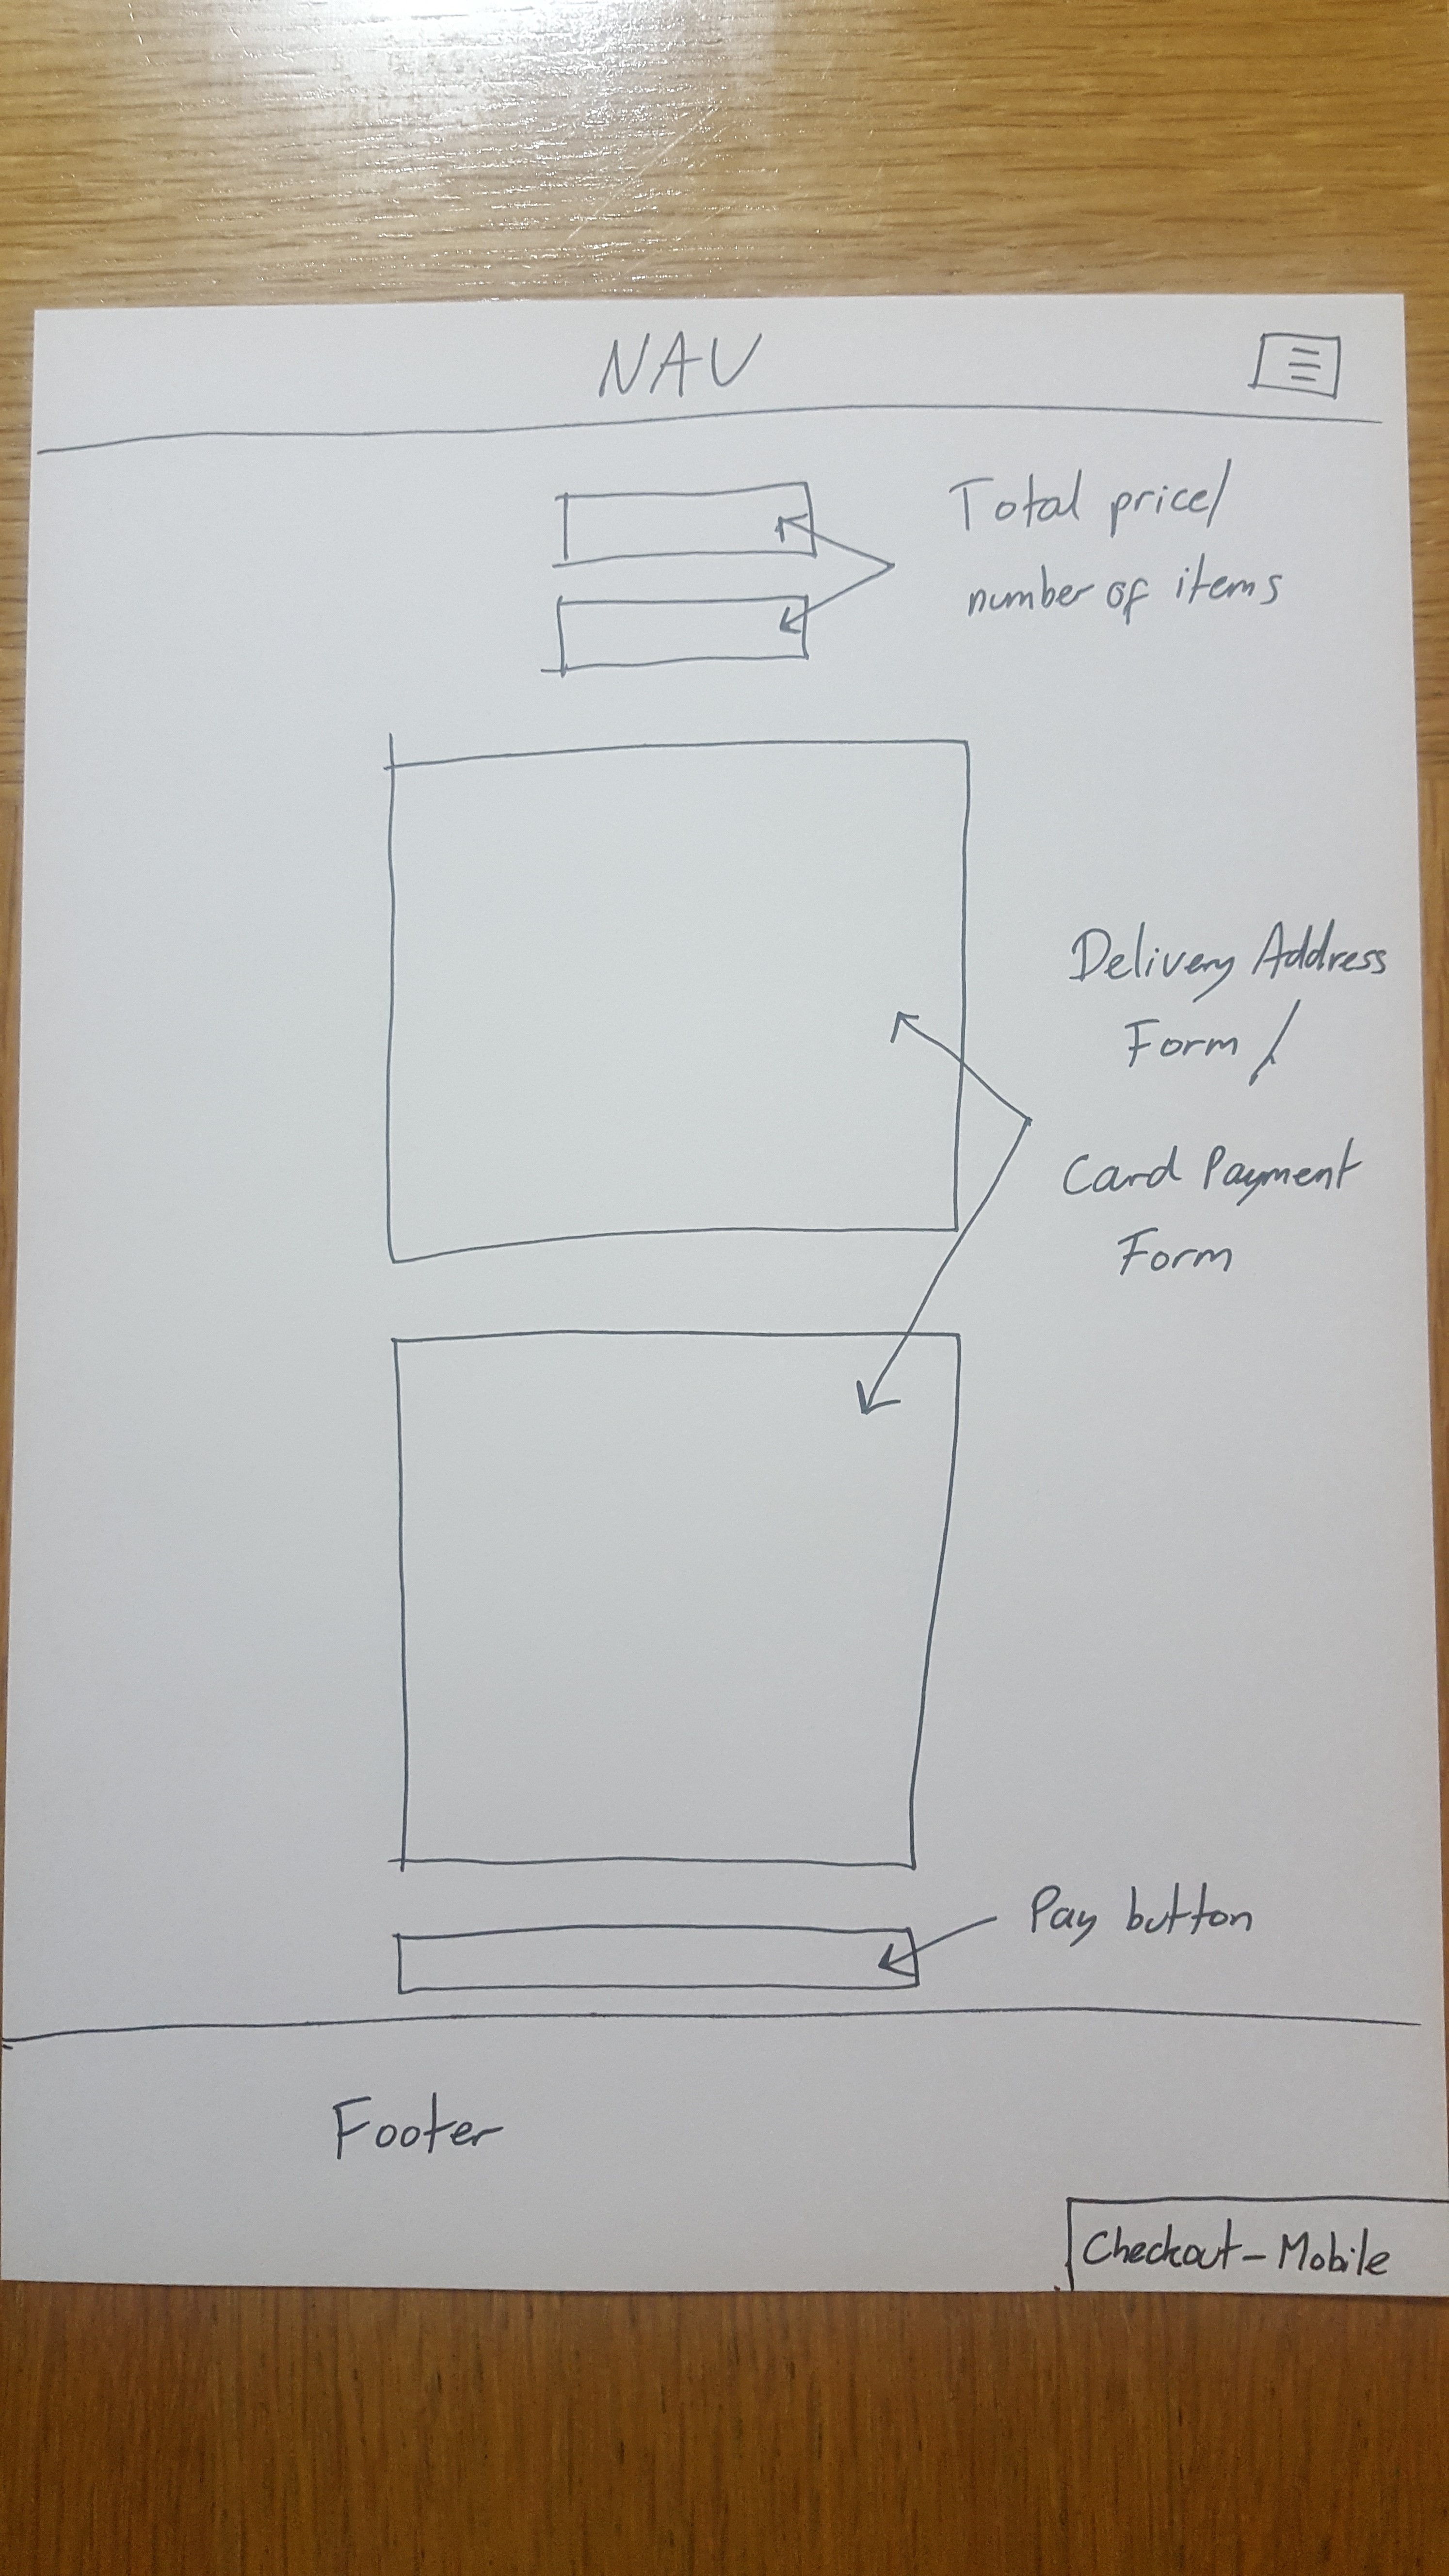 NAV
Total price/
number of items
Delivery Address
Form /
Card Payment
Form
Pay button
Footer
Checkout - Mobile